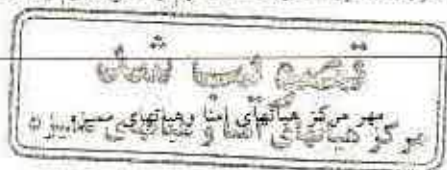 ثبت شد
مهر مرکز هیأتهای امنا وهیأتهای ممیزه
مرکز هیأتهای امنا و هیأتهای ممیزه